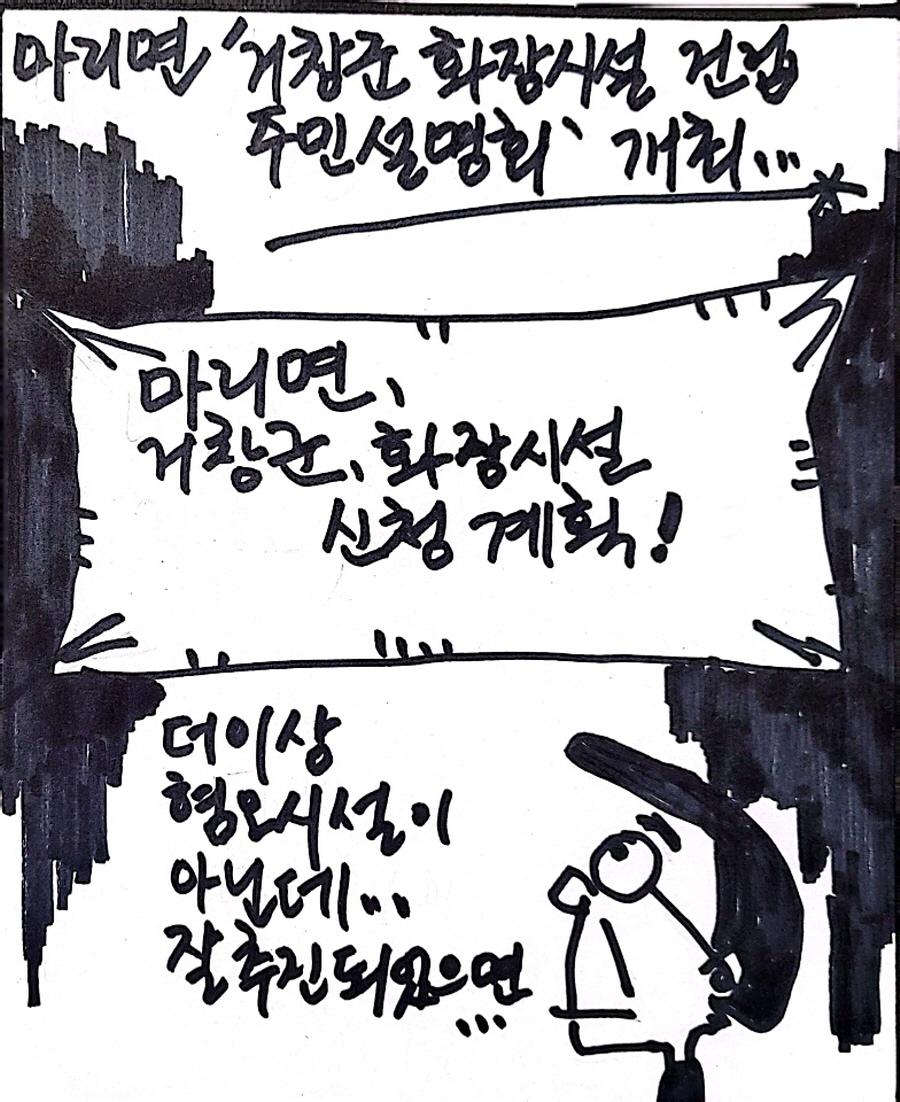 마리면 '거창군 화장시설 건립
주민설명회' 개최...
마리면,
거창군, 화장시설
신청 계획!
더이상
혐오시설이
아닌데...
잘추진되었으면
...